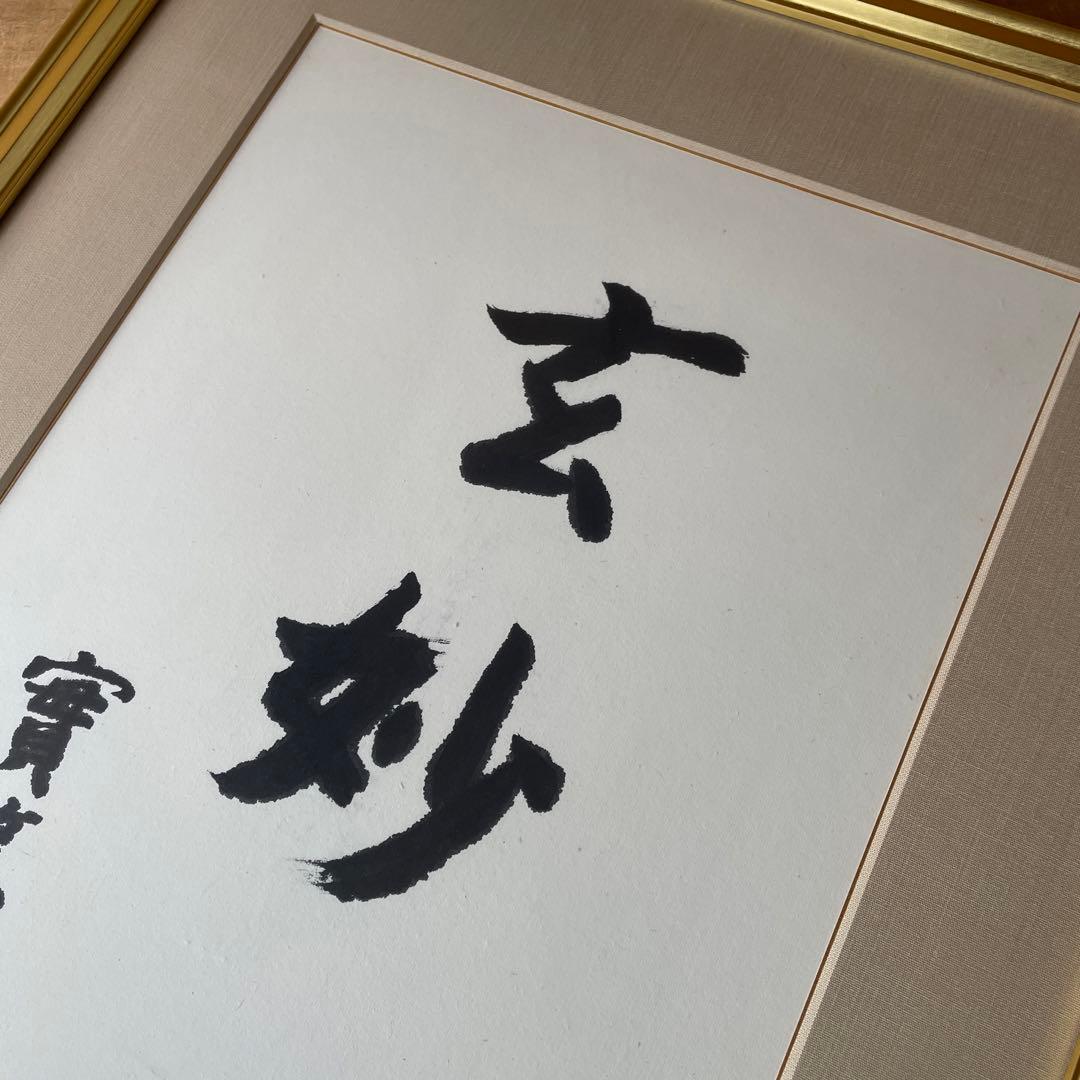 玄妙
實